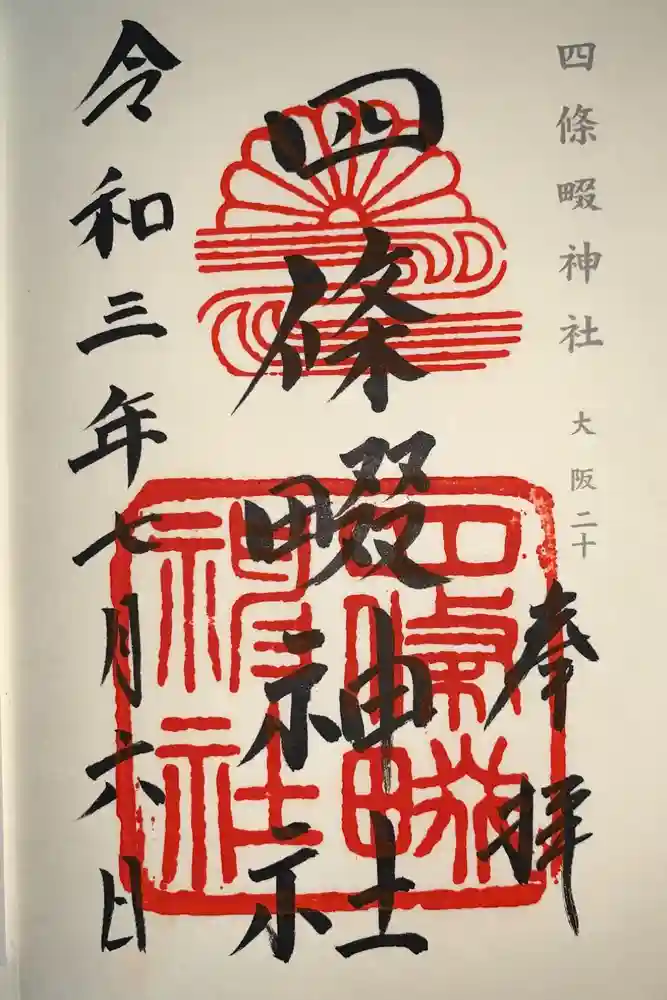 四條畷神社 大阪二十
奉拝
四條畷神社
四條畷神社
令和三年七月六日